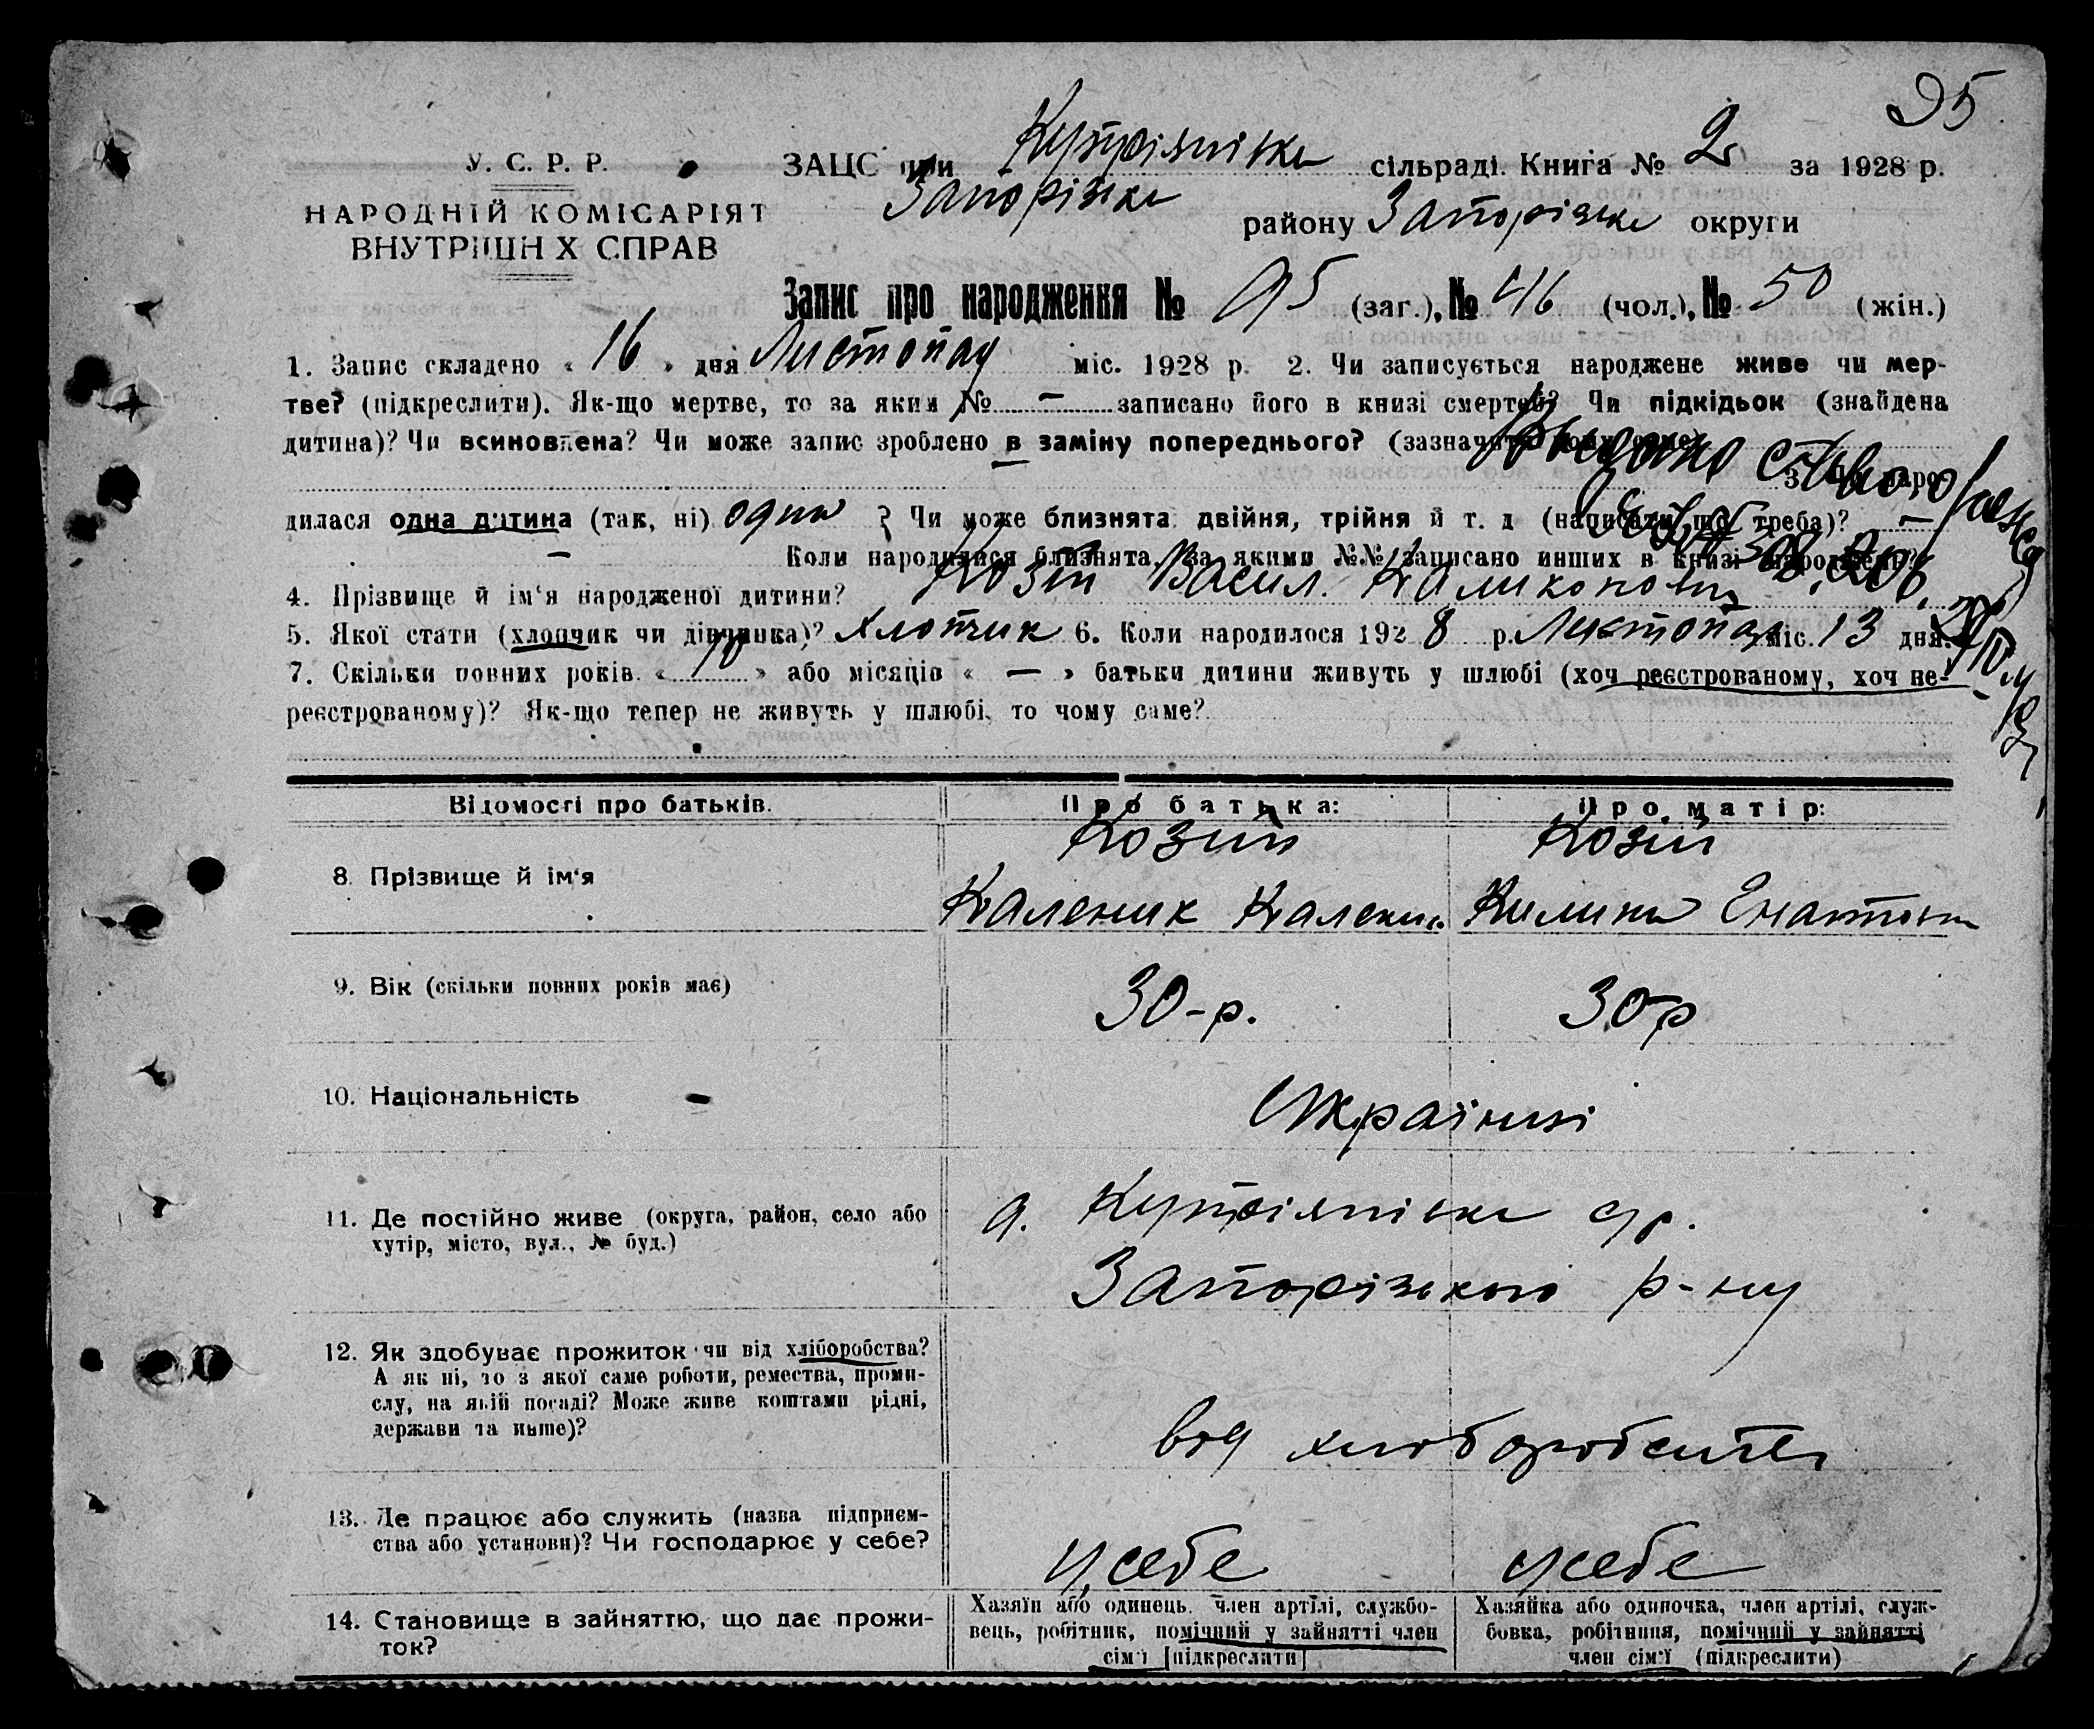 95
У. С. Р. Р.
НАРОДНІЙ КОМІСАРІЯТ
ВНУТРІШН Х СПРАВ
ЗАЦС при сільраді. Книга № 2 за 1928 р.
Запорізьке району Запорізьке округи
Запис про народження № 95 (заг.), № 46 (чол.), № 50 (жін.)
1. Запис складено « 16 » дня Листопад міс. 1928 р. 2. Чи записується народжене живе чи мер-
тве? (підкреслити). Як-що мертве, то за яким № — записано його в книзі смертей? Чи підкідьок (знайдена
дитина)? Чи всиновлена? Чи може запис зроблено в заміну попереднього?
3. Чи наро-
дилася одна дитина (так, ні) один ? Чи може близнята: двійня, трійня й т. д (написати що треба)? —
— Коли народилися близнята, за якими №№ записано инших в книзі народжень?
4. Прізвище й ім'я народженої дитини? Козій Васил.
5. Якої стати (хлопчик чи дівчинка)? Хлопчик 6. Коли народилося 1928 р. Листопад міс. 13 дня.
7. Скільки повних років « » або місяців « — » батьки дитини живуть у шлюбі (хоч реєстрованому, хоч не-
реєстрованому)? Як-що тепер не живуть у шлюбі, то чому саме?
Відомості про батьків. Про батька: Про матір:
8. Прізвище й ім'я
Козій Козій
Каленик Каленик. Килина
9. Вік (скільки повних років має) 30-р. 30 р
10. Національність Українці
11. Де постійно живе (округа, район, село або
хутір, місто, вул., № буд.)
Запорізького р-ну
12. Як здобуває прожиток чи від хліборобства?
А як ні, то з якої саме роботи, ремества, проми-
слу, на якій посаді? Може живе коштами рідні,
держави та инше)?
від хліборобства
13. Де працює або служить (назва підприєм-
ства або установи)? Чи господарює у себе?
у себе у себе
14. Становище в зайняттю, що дає прожи-
ток?
Хазяїн або одинець, член артілі, службо-
вець, робітник, помічний у зайнятті член
сім'ї [підкреслити]
Хазяйка або одиночка, член артілі, служ-
бовка, робітниця, помічний у зайнятті
член сім'ї (підкреслити)